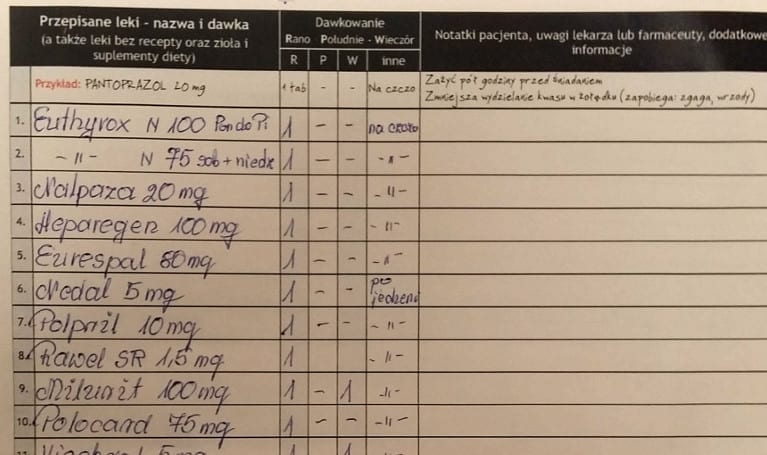 Przepisane leki - nazwa i dawka
(a także leki bez recepty oraz zioła i suplementy diety)
Dawkowanie
Rano - Południe - Wieczór
R P W inne
Notatki pacjenta, uwagi lekarza lub farmaceuty, dodatkowe informacje
Przykład: PANTOPRAZOL 20 mg 1 tab - - Na czczo Zażyć pół godziny przed śniadaniem
Zmniejsza wydzielanie kwasu w żołądku (zapobiega: zgaga, wrzody)
1. Euthyrox N 100 Pon do Pi 1 - - na czczo
2. -11- N 75 sob + niedz 1 - - -11-
3. Nolpaza 20 mg 1 - - -11-
4. Heparegen 100 mg 1 - - -11-
5. Eurespal 80 mg 1 - - -11-
6. Nedal 5 mg 1 - - po jedzeni
7. Polpril 10 mg 1 - - -11-
8. Rawel SR 1,5 mg 1 -11-
9. Milurit 100 mg 1 - 1 -11-
10. Polocard 75 mg 1 - - -11-